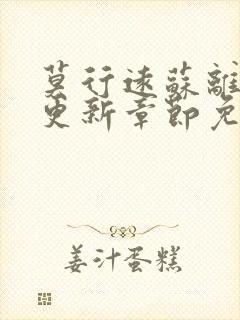 莫行远苏離
更新章節免
姜汁蛋糕